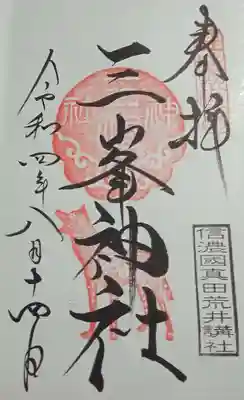 奉拝
三峯神社
信濃國真田荒井講社
令和四年八月十四日